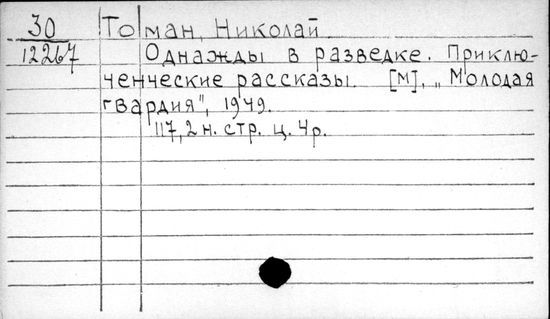 30
12267
Томан, Николай
Однажды в разведке. Приклю-
ченческие рассказы. [М], „Молодая
гвардия", 1949.
117, 2 н. стр. ц. 4р.